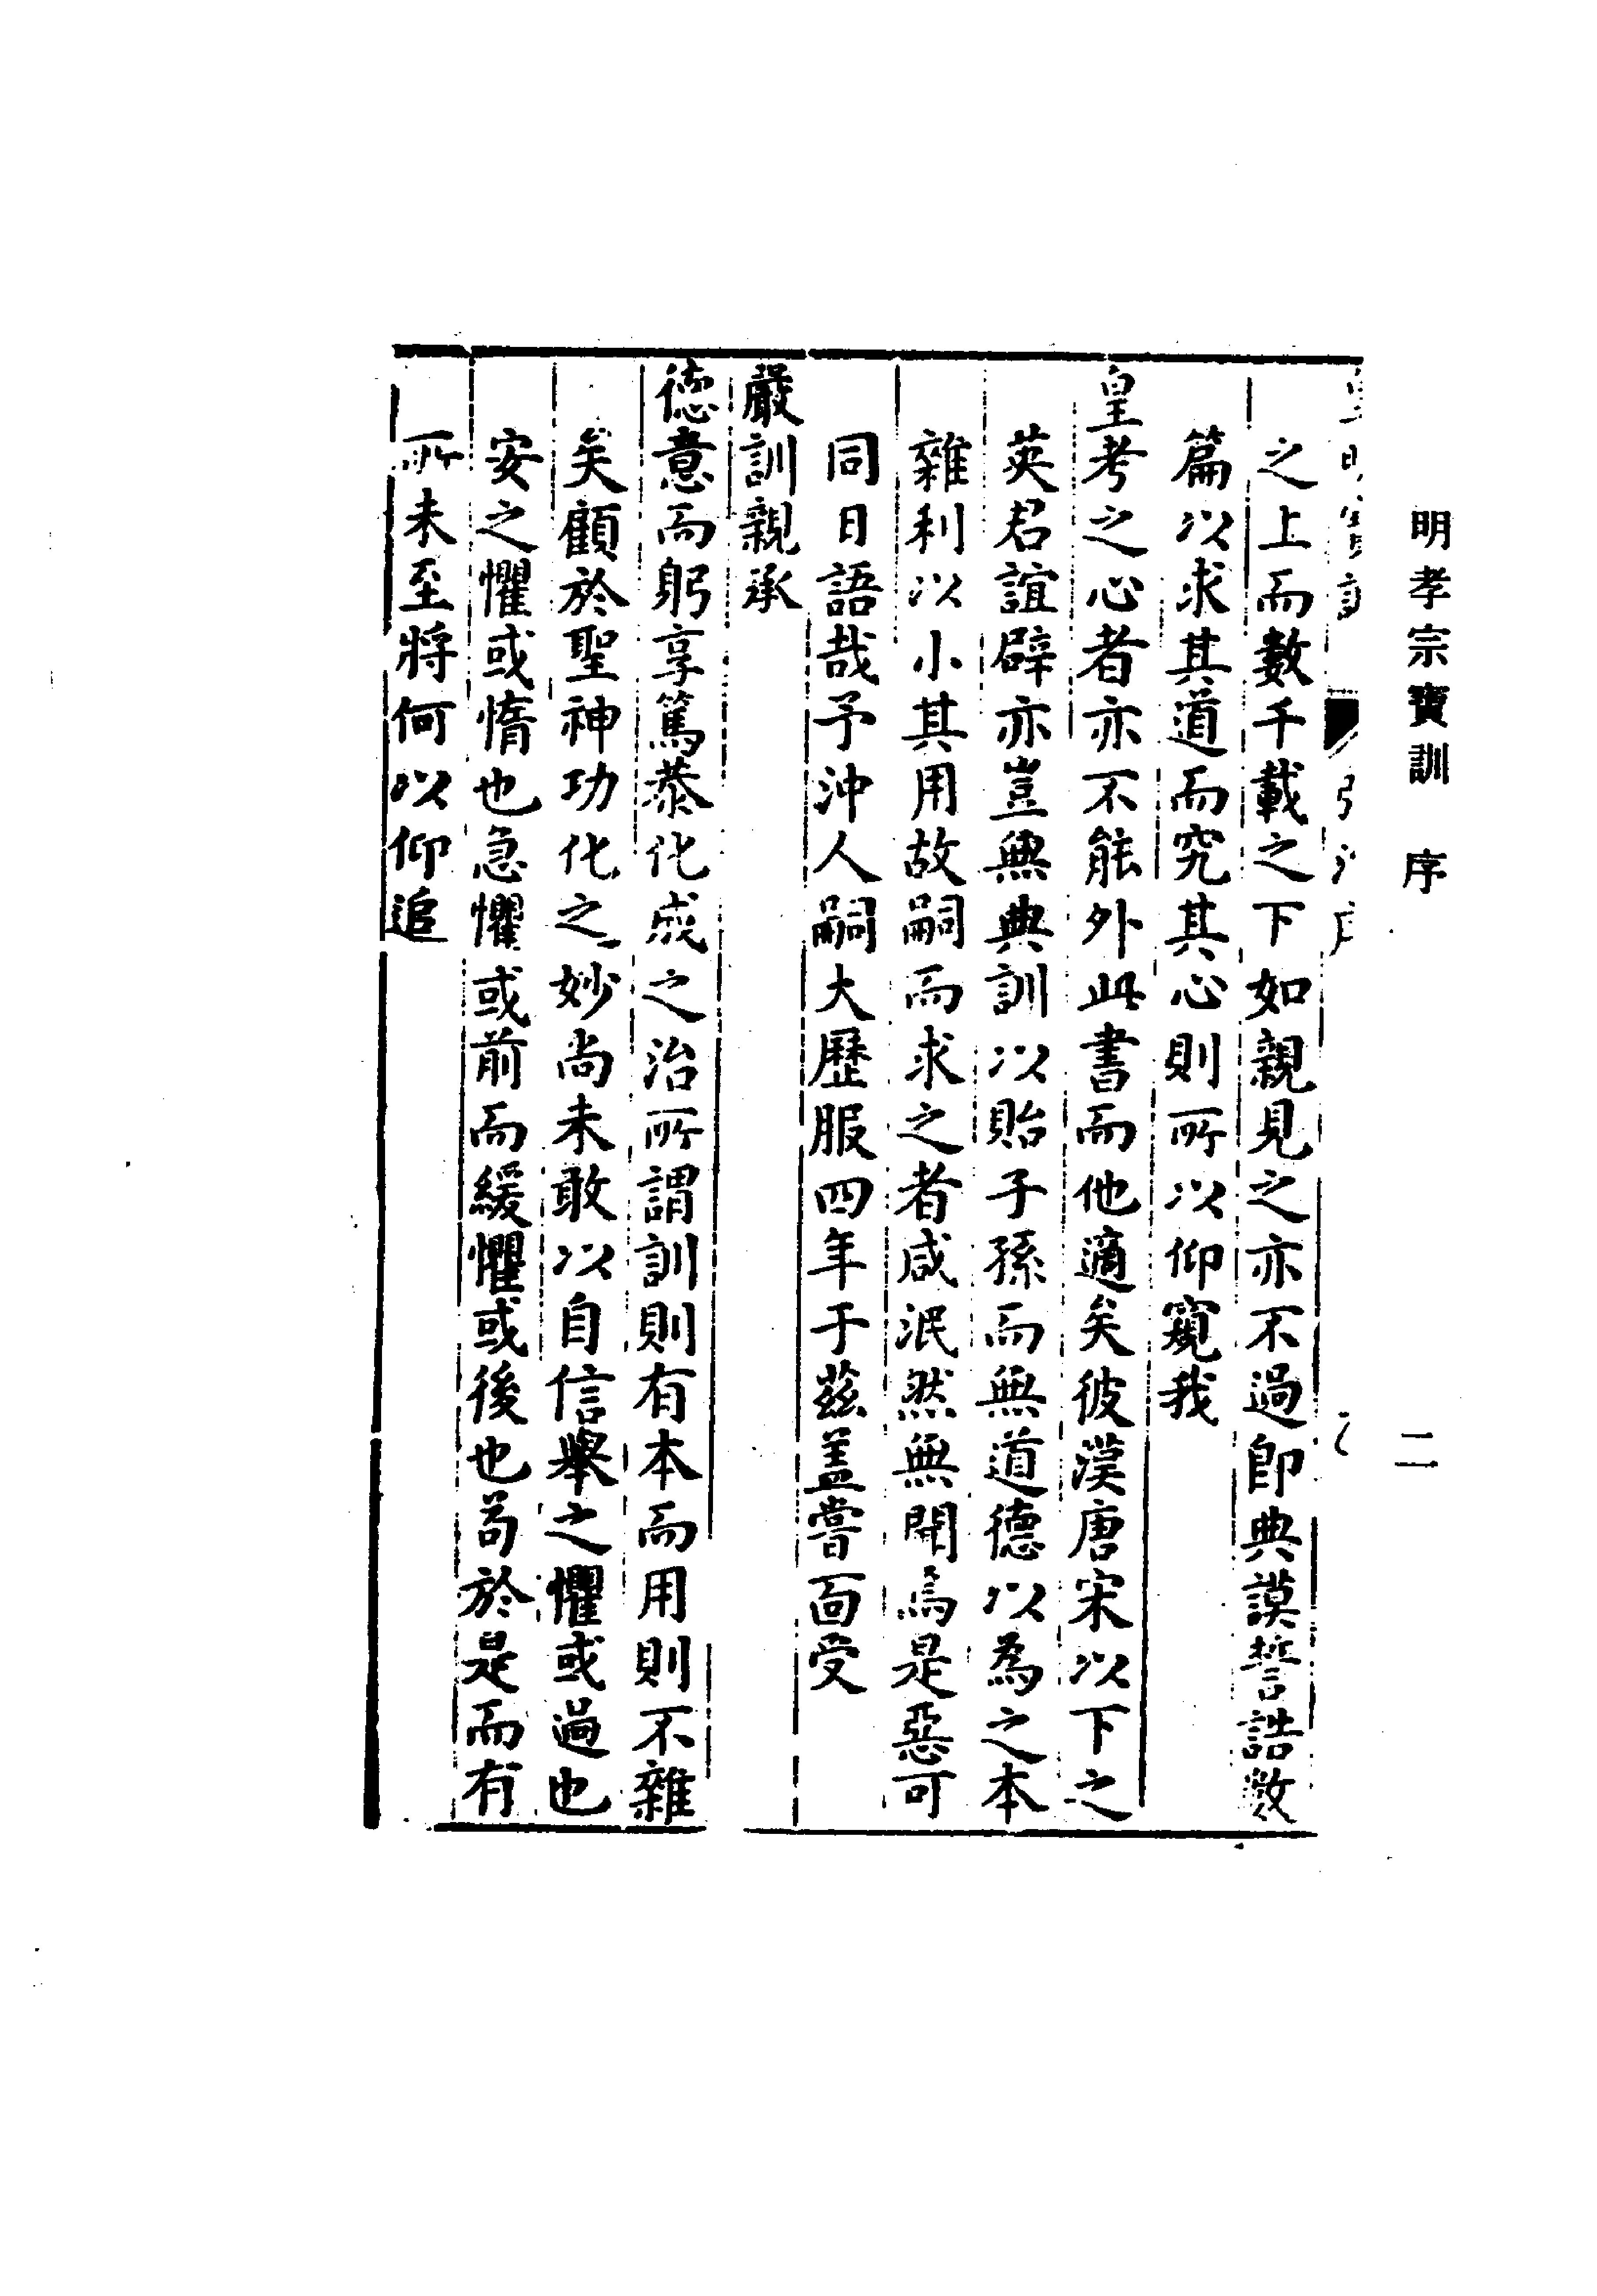 明孝宗寶訓　序　二
之上而數千載之下如親見之亦不過卽典謨誓誥數
篇以求其道而究其心則所以仰窺我
皇考之心者亦不能外此書而他適矣彼漢唐宋以下之
英君誼辟亦豈無典訓以貽子孫而無道德以爲之本
雜利以小其用故嗣而求之者咸泯然無聞焉是惡可
同日語哉予沖人嗣大歷服四年于茲蓋嘗面受
嚴訓親承
德意而躬享篤恭化成之治所謂訓則有本而用則不雜
矣顧於聖神功化之妙尚未敢以自信舉之懼或過也
安之懼或惰也急懼或前而緩懼或後也茍於是而有
所未至將何以仰追